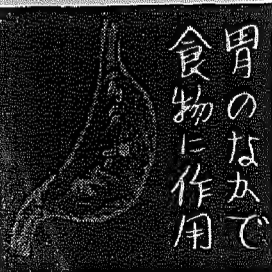 胃のなかで
食物に作用